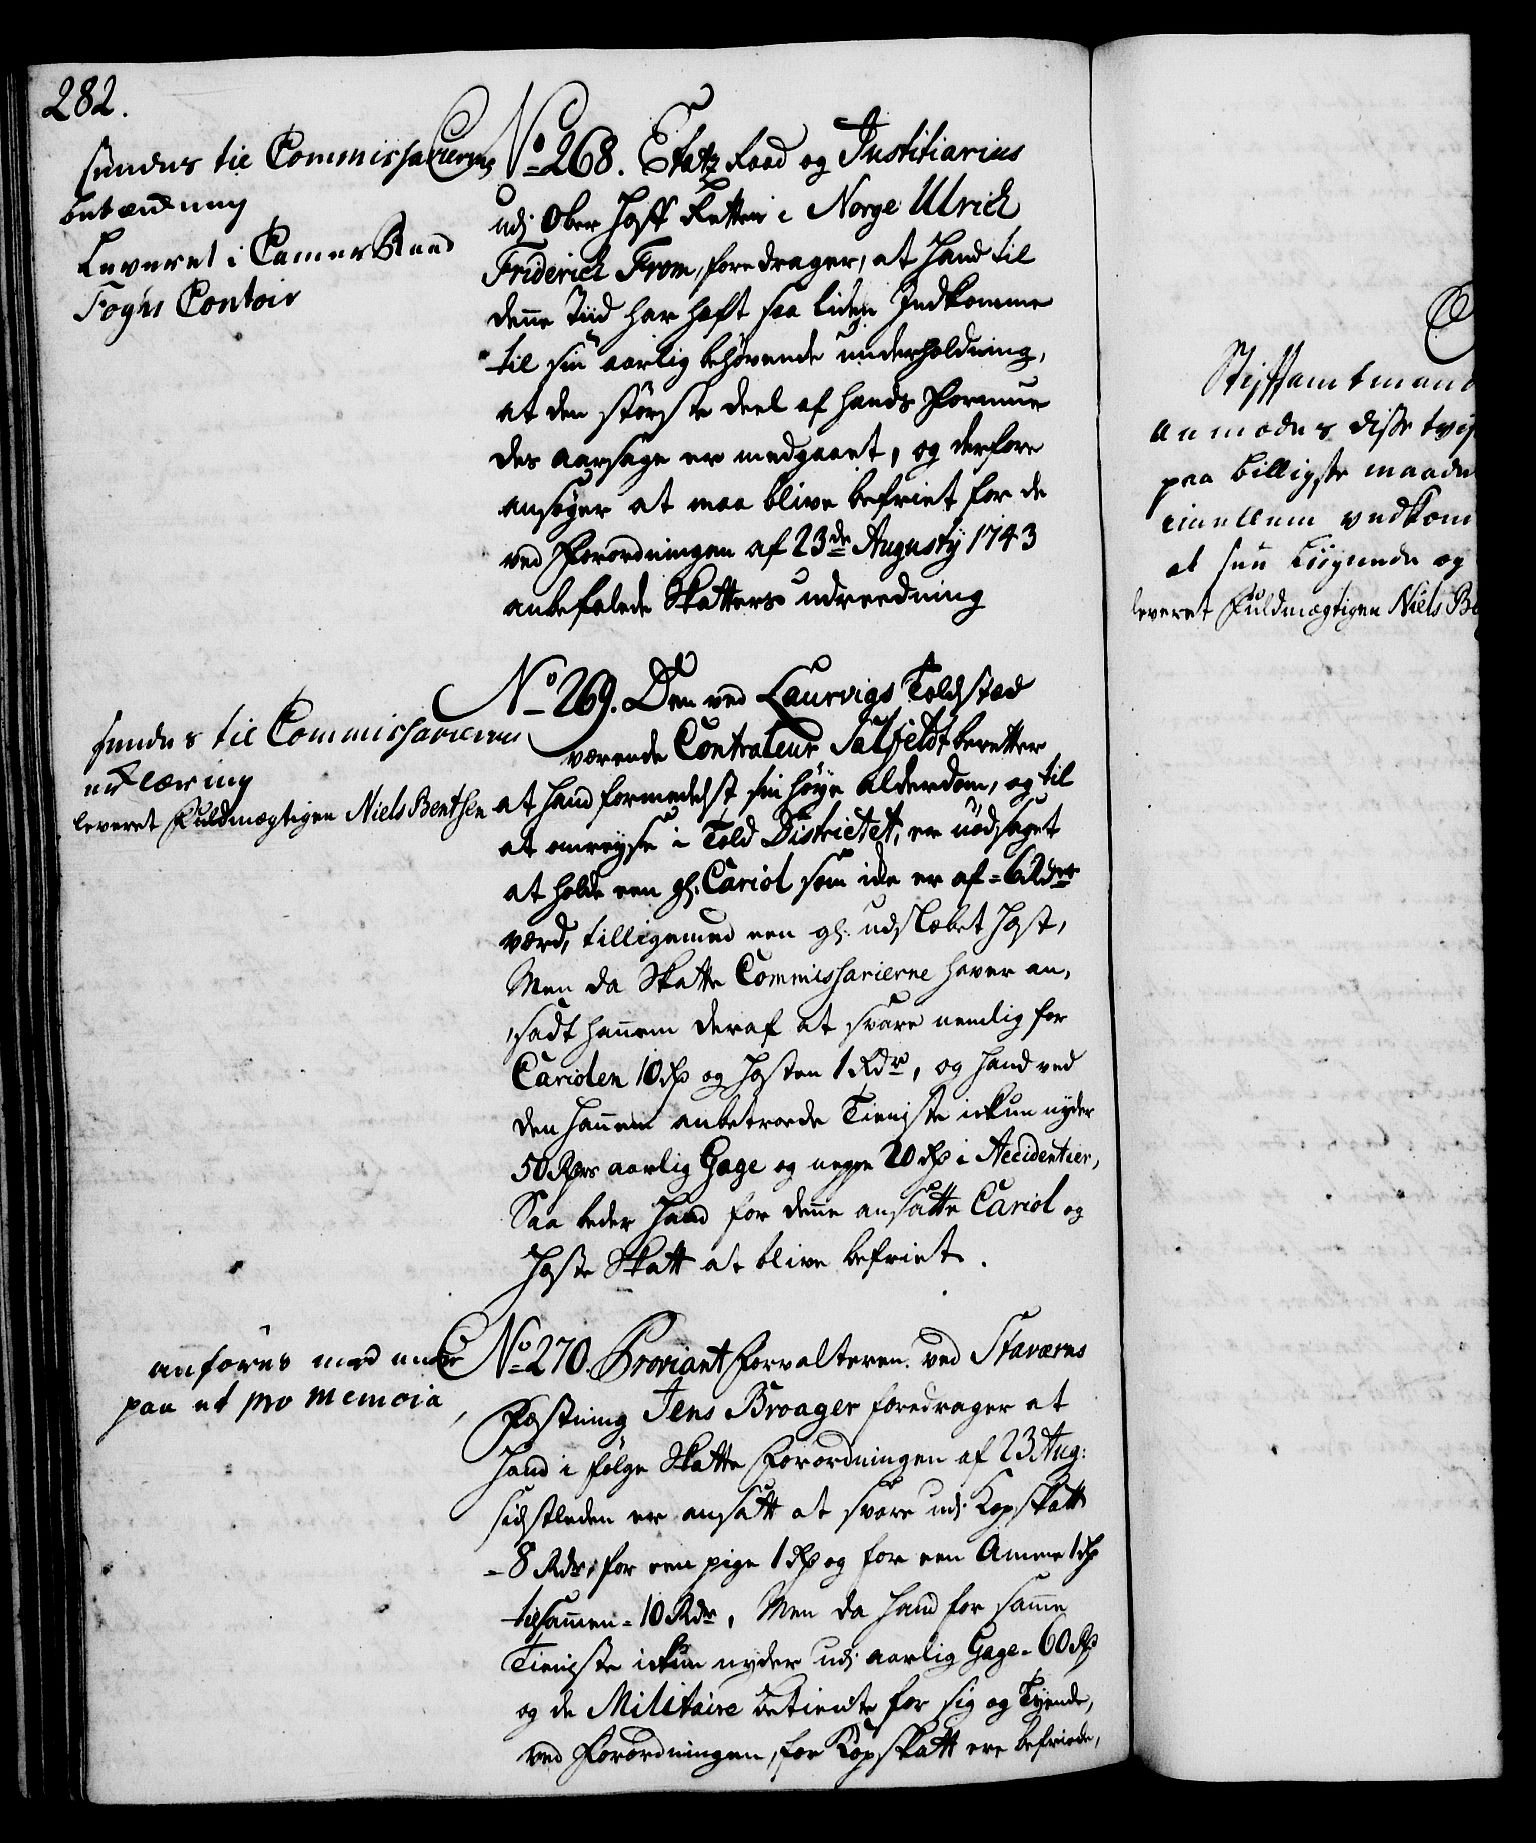 282.
sendes til Commissariernes
betænkning
Leveret i Camer Raad
Foghs Contoir
No 268. Etatz Raad og Justitiarius
udj Ober Hoff Retten i Norge Ulrich
Friderich From, foredrager, at Hand til
denne Tiid har haft saa liden Indkomme
til sin aarlig behøvende underholdning,
at den største deel af hands Formue
des aarsage er medgaaet, og derfore
ansøger at maa blive befriet for de
ved Forordningen af 23de Augusty 1743
anbefalede Skatters udreedning
sendes til Commissariernes
erklæring
leveret Fuldmægtigen Niels Benthsen
No 269. Den ved Laurvigs Toldsted
værende Contraleur Salfeldt beretter
at hand formedelst sin høye alderdom, og til
at omreyse i Told Districtet, er nødsaget
at holde een gl. Cariol som icke er af = 6 Rdr
værd, tilligemed een gl. udslæbet Hest,
Men da Skatte Commissarierne haver an,
sadt hannem deraf at svare nemlig for
Cariolen 10 Rd og Hesten 1 Rdr, og hand ved
den hannem anbetroede Tieniste ickun nyder
50 Rdrs aarlig Gage og neppe 20 Rd i Accidentier,
Saa beder Hand for denne ansatte Cariol og
Heste Skatt at blive befriet.
anføres med meere
paa et pro memoria
No 270. Proviantforvalteren ved Staværns
Fæstning Jens Broager foredrager at
Hand i følge Skatte Forordningen af 23 Aug:
sidstleden er ansatt at svare udj Kopskatt
- 8 Rdr, for een pige 1 Rd og for een Amme 1 Rd
tilsammen = 10 Rdr, Men da Hand for samme
Tieniste ickun nyder udj aarlig Gage = 60 Rd
og de Militaire betiente for sig og Tyende,
ved Forordningen, for Kopskatt ere befriede,
Stiftsambtmand
anmodes disse tvi
paa billigste maade
imellem vedkom
at see biigende og
leveret Fuldmægtigen Niels Be